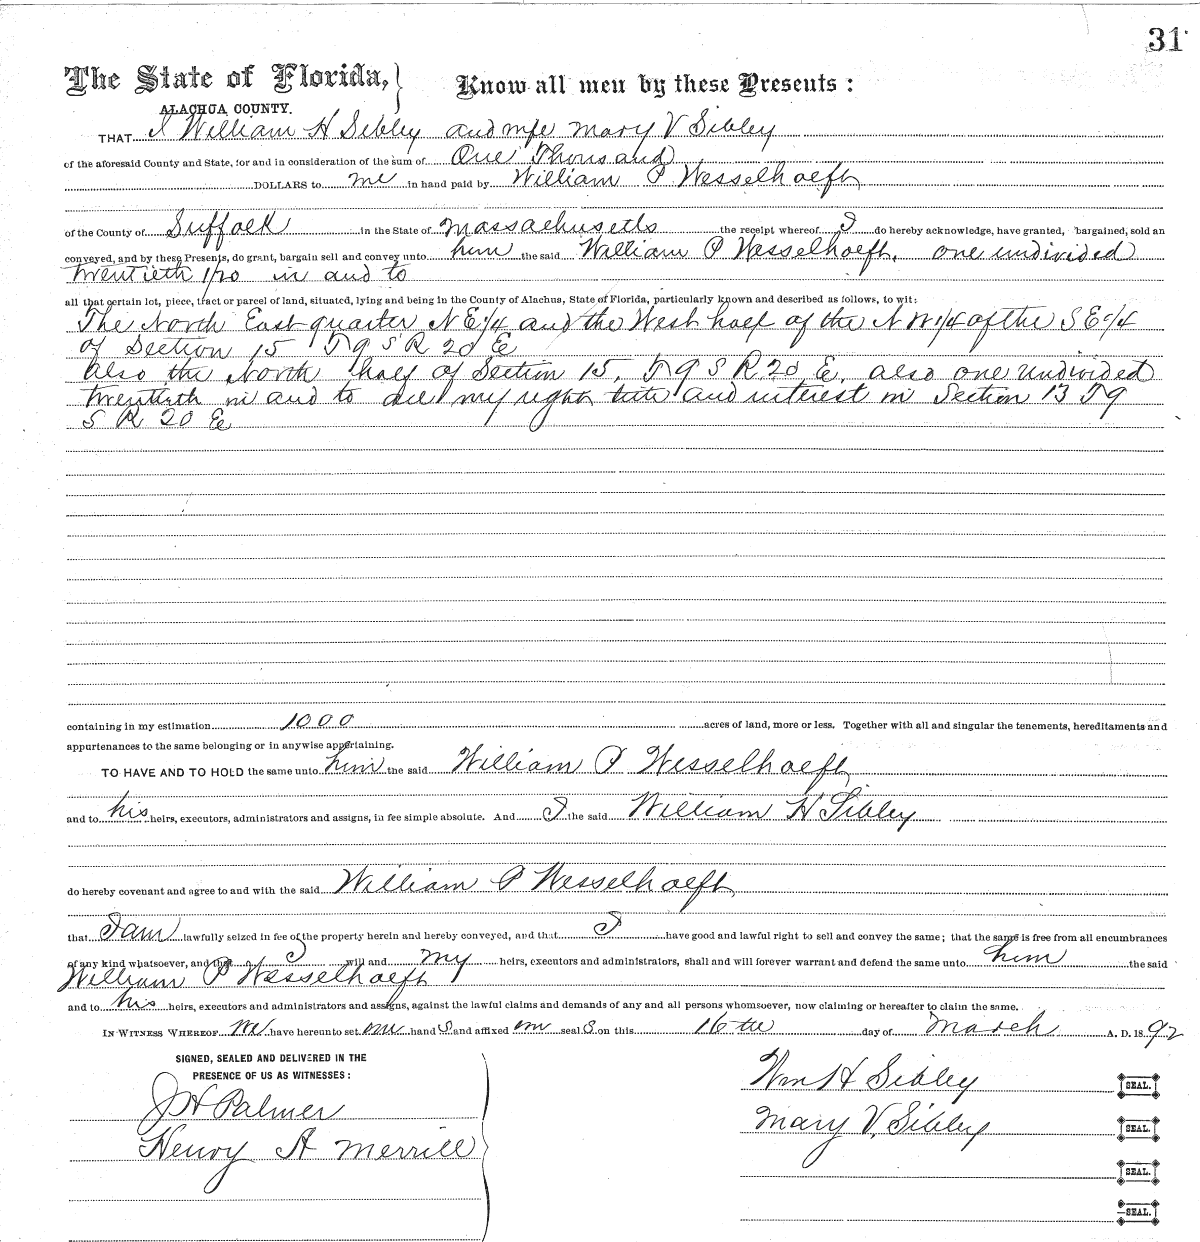 31
The State of Florida, Know all men by these Presents:
ALACHUA COUNTY.
THAT I William H Sibley and wife Mary V Sibley
of the aforesaid County and State, for and in consideration of the sum of One Thousand
DOLLARS to me in hand paid by William P Wesselhoeft
of the County of Suffolk in the State of Massachusetts the receipt whereof I do hereby acknowledge, have granted, bargained, sold an
conveyed, and by these Presents, do grant, bargain sell and convey unto him the said William P Wesselhoeft, one undivided
twentieth 1/20 in and to
all that certain lot, piece, tract or parcel of land, situated, lying and being in the County of Alachua, State of Florida, particularly known and described as follows, to wit:
The North East quarter N E 1/4 and the West half of the N W 1/4 of the S E 1/4
of Section 15 T 9 S R 20 E
also the North half of Section 15, T 9 S R 20 E, also one undivided
twentieth in and to all my right title and interest in Section 13 T 9
S R 20 E
containing in my estimation 1000 acres of land, more or less. Together with all and singular the tenements, hereditaments and
appurtenances to the same belonging or in anywise appertaining.
TO HAVE AND TO HOLD the same unto him the said William P Wesselhoeft
and to his heirs, executors, administrators and assigns, in fee simple absolute. And I the said William H Sibley
do hereby covenant and agree to and with the said William P Wesselhoeft
that I am lawfully seized in fee of the property herein and hereby conveyed, and that I have good and lawful right to sell and convey the same; that the same is free from all encumbrances
of any kind whatsoever, and that I will and my heirs, executors and administrators, shall and will forever warrant and defend the same unto him the said
William P Wesselhoeft
and to his heirs, executors and administrators and assigns, against the lawful claims and demands of any and all persons whomsoever, now claiming or hereafter to claim the same.
IN WITNESS WHEREOF we have hereunto set our hand s and affixed our seal s on this 16th day of March A. D. 18 92
SIGNED, SEALED AND DELIVERED IN THE
PRESENCE OF US AS WITNESSES:
Wm H Sibley SEAL.
J H Palmer
Mary V. Sibley SEAL.
Henry A Merrill
SEAL.
SEAL.